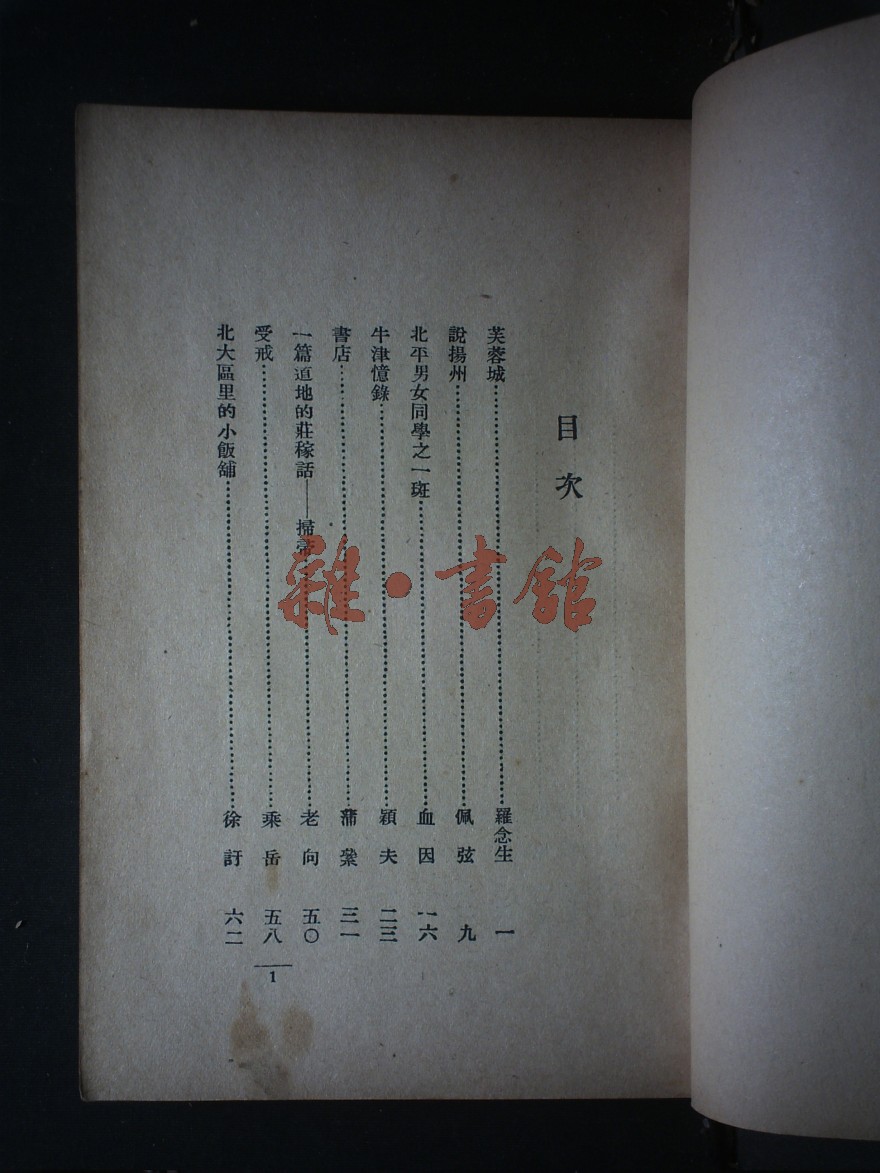 目次
芙蓉城……羅念生 一
說揚州……佩弦 九
北平男女同學之一斑……血因 一六
牛津憶錄……穎夫 二三
書店……蒲棠 三一
一篇道地的莊稼話——掃帚……老向 五〇
受戒……乘岳 五八
北大區里的小飯舖……徐訏 六二
1
雜·書館